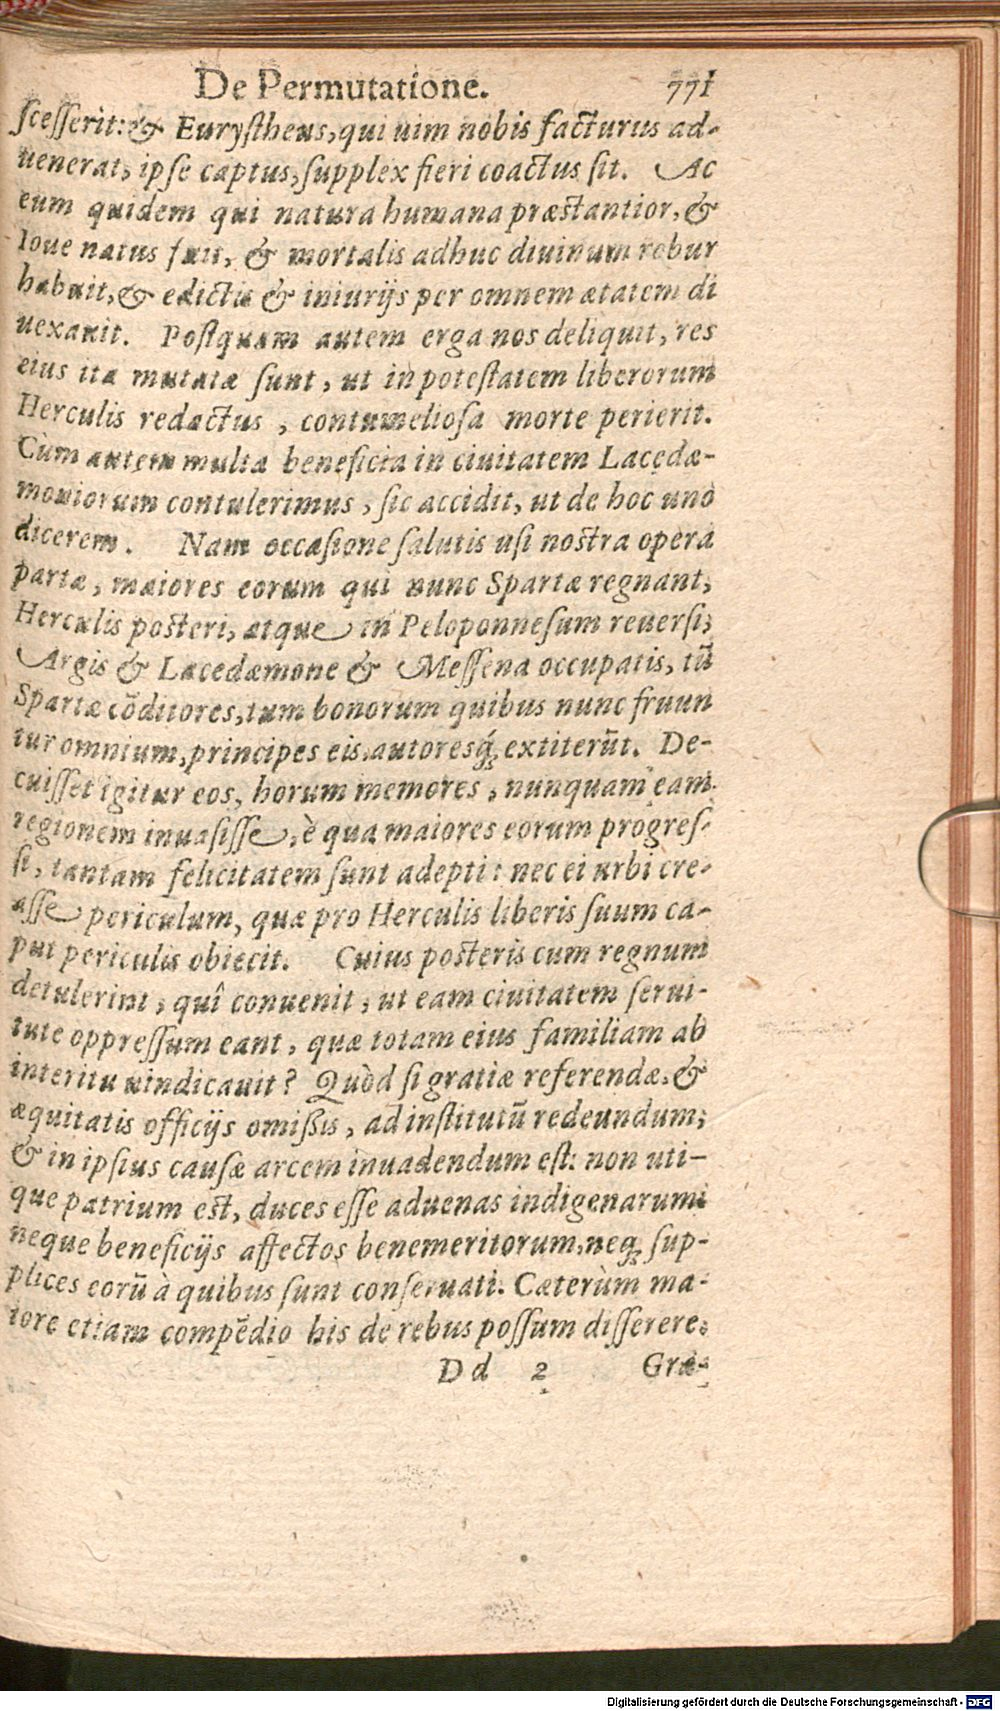 De Permutatione. 771
scesserit: & Eurystheus, qui uim nobis facturus ad-
uenerat, ipse captus, supplex fieri coactus sit. Ac
eum quidem qui natura humana præstantior, &
Ioue natus fuit, & mortalis adhuc diuinum robur
habuit, & edictis & iniurijs per omnem ætatem di
uexauit. Postquam autem erga nos deliquit, res
eius ita mutatæ sunt, ut in potestatem liberorum
Herculis redactus, contumeliosa morte perierit.
Cùm autem multa beneficia in ciuitatem Lacedæ-
moniorum contulerimus, sic accidit, ut de hoc uno
dicerem. Nam occasione salutis usi nostra opera
partæ, maiores eorum qui nunc Spartæ regnant,
Herculis posteri, atque in Peloponnesum reuersi;
Argis & Lacedæmone & Messena occupatis, tũ
Spartæ cõditores, tum bonorum quibus nunc fruun
tur omnium, principes eis, autoresq́; extiterũt. De-
cuisset igitur eos, horum memores, nunquam eam
regionem inuasisse, è qua maiores eorum progres-
si, tantam felicitatem sunt adepti: nec ei urbi cre-
asse periculum, quæ pro Herculis liberis suum ca-
put periculis obiecit. Cuius posteris cum regnum
detulerint, quî conuenit, ut eam ciuitatem serui-
tute oppressum eant, quæ totam eius familiam ab
interitu uindicauit? Quòd si gratiæ referendæ, &
æquitatis officijs omißis, ad institutũ redeundum;
& in ipsius causæ arcem inuadendum est: non uti-
que patrium est, duces esse aduenas indigenarum
neque beneficijs affectos benemeritorum, neq; sup-
plices eorũ à quibus sunt conseruati. Cæterùm ma-
iore etiam compẽdio his de rebus possum disserere.
Dd 2 Græ-
Digitalisierung gefördert durch die Deutsche Forschungsgemeinschaft - DFG